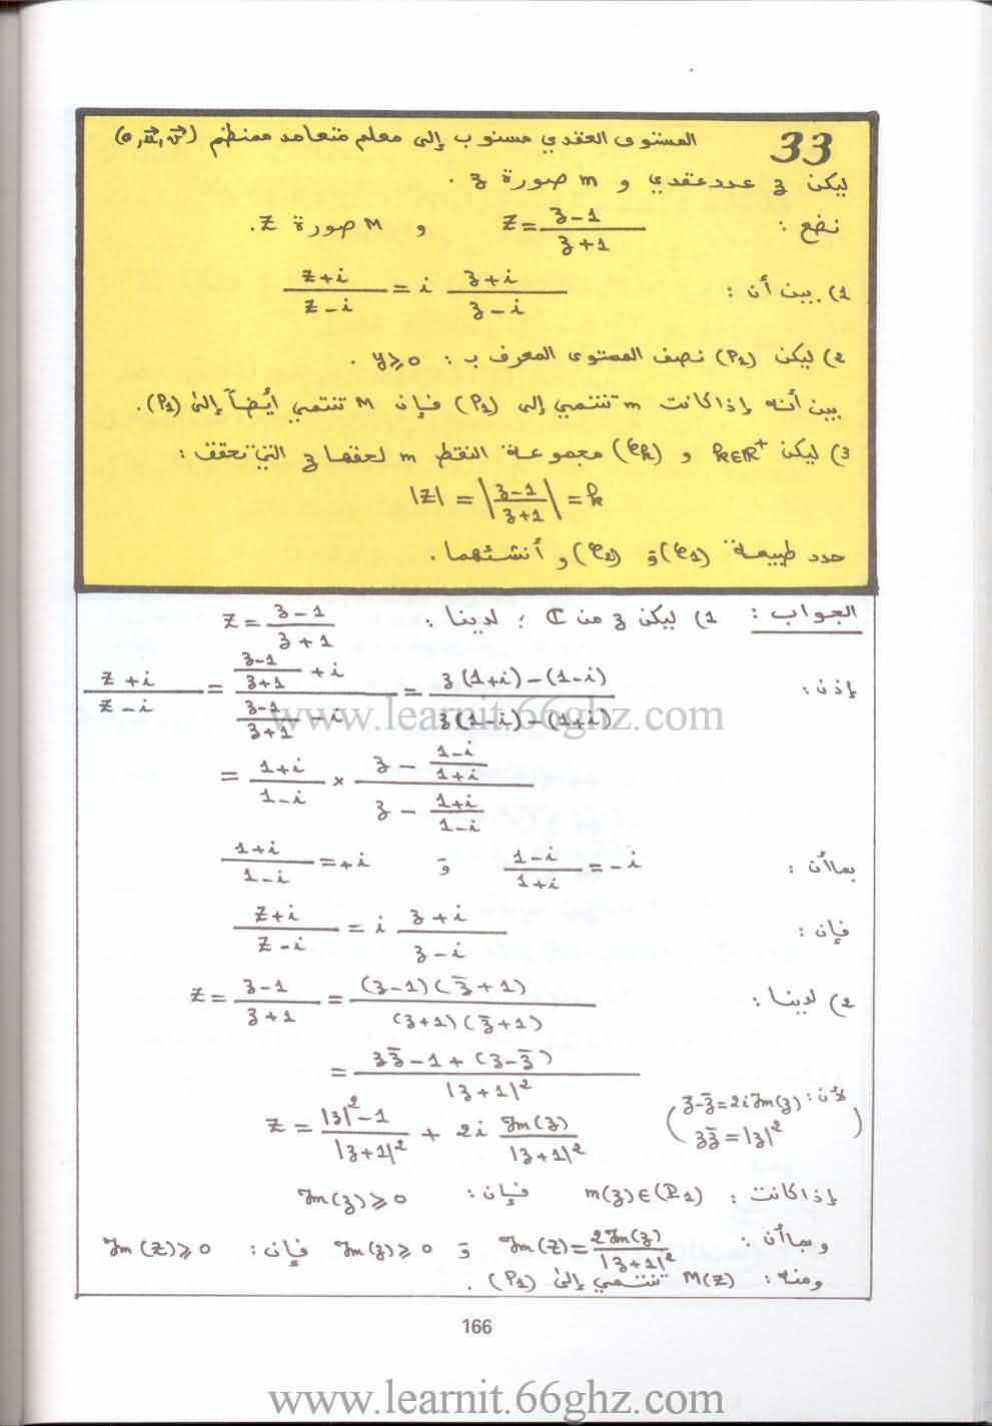 33 المستوى العقدي منسوب إلى معلم متعامد ممنظم (o,u⃗,v⃗)
ليكن z عدد عقدي و m صورة z .
نضع : Z = (z-1)/(z+1) و M صورة Z.
1) بين أن : (Z+i)/(Z-i) = i (z+i)/(z-i)
2) ليكن (P1) نصف المستوى المعرف ب : y⩾0 .
بين أنه إذا كانت m تنتمي إلى (P1) فإن M تنتمي أيضاً إلى (P1).
3) ليكن k∈ℝ⁺ و (ℰk) مجموعة النقط m لحقها z التي تحقق :
|Z| = |(z-1)/(z+1)| = k
حدد طبيعة (ℰ1) و (ℰ2) و أنشئهما .
الجواب : 1) ليكن z من ℂ ؛ لدينا : Z = (z-1)/(z+1)
إذن : (Z+i)/(Z-i) = ((z-1)/(z+1) + i)/((z-1)/(z+1) - i) = (z(1+i)-(1-i))/(z(1-i)-(1+i))
= (1+i)/(1-i) × (z - (1-i)/(1+i))/(z - (1+i)/(1-i))
بما أن : (1-i)/(1+i) = -i و (1+i)/(1-i) = +i
فإن : (Z+i)/(Z-i) = i (z+i)/(z-i)
2) لدينا : Z = (z-1)/(z+1) = ((z-1)(z̄+1))/((z+1)(z̄+1))
= (zz̄-1+(z-z̄))/|z+1|²
Z = (|z|²-1)/|z+1|² + 2i Im(z)/|z+1|² (لأن : z-z̄=2iIm(z)
zz̄=|z|²)
إذا كانت : m(z)∈(P1) فإن : Im(z)⩾0
وبما أن : Im(Z)=2Im(z)/|z+1|² و Im(z)⩾0 فإن : Im(Z)⩾0
ومنه : M(Z) تنتمي إلى (P1) .
166
www.learnit.66ghz.com
www.learnit.66ghz.com